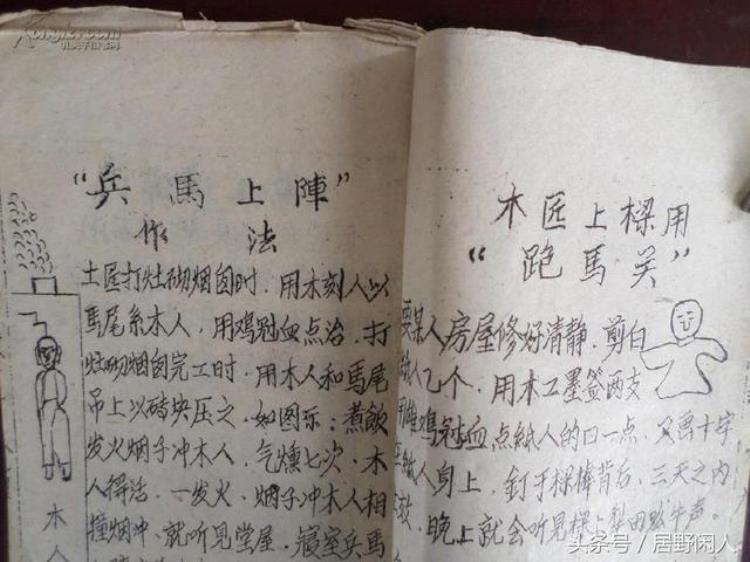 Kongfz.com
孔夫子旧书网
“兵馬上陣”
作法
土匠打灶砌烟囱时，用木刻人以
馬尾系木人，用鸡冠血点治，打
灶砌烟囱完工时，用木人和馬尾
吊上以砖块压之，如图示：煮飯
发火烟子冲木人，气熏七次，木
人得活，一发火，烟子冲木人相
撞烟冲，就听見堂屋，寝室兵馬
木人
木匠上樑用
“跑馬关”
要某人房屋修好清静，剪白
纸人乙个，用木工墨签两支
用雄鸡冠血点紙人的口一点，又画十字
紙人身上，釘于樑棒背后，三天之内
晚上就会听見樑上犁田吆牛声。
头条号/居野闲人